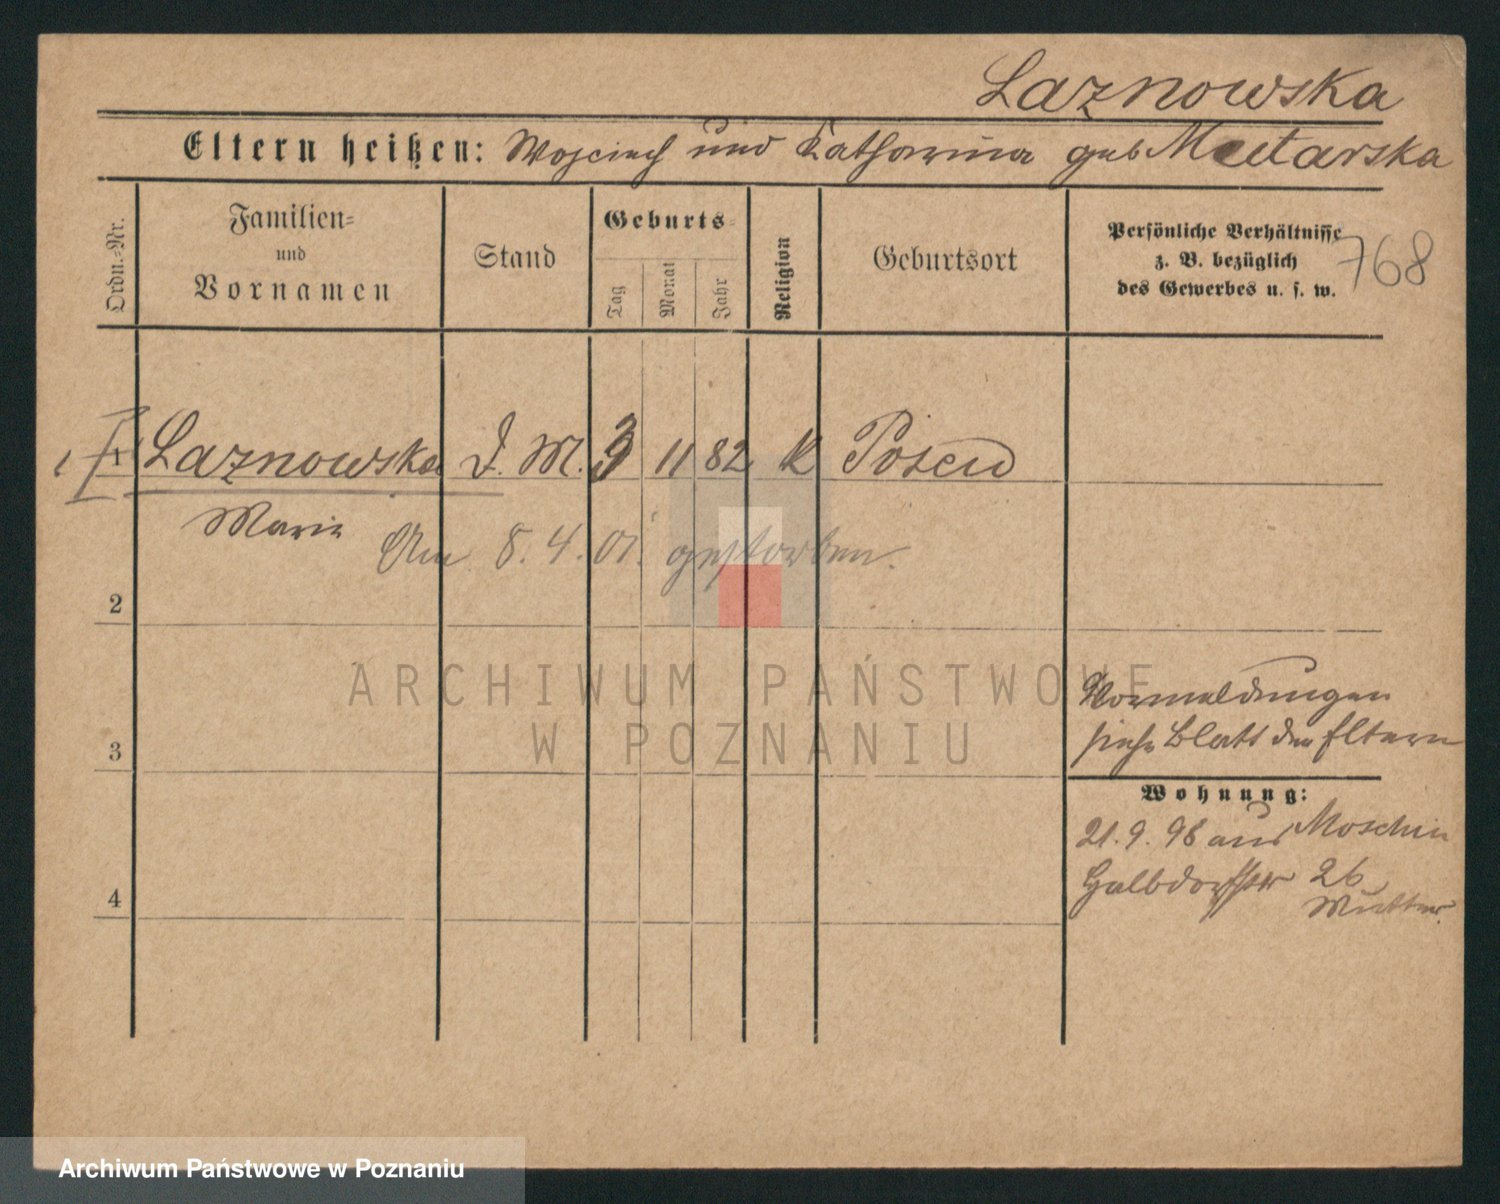 Laznowska
Eltern heißen: Wojciech und Katharina geb Mutarska
Ordn.=Nr.
Familien=
und
Vornamen
Stand
Geburts=
Tag
Monat
Jahr
Religion
Geburtsort
Persönliche Verhältnisse
z. B. bezüglich
des Gewerbes u. s. w.
768
1 Laznowska D. M. 3 11 82 K Posen
Marie
Am 8. 4. 01. gestorben.
2
ARCHIWUM PAŃSTWOWE
W POZNANIU
Vormeldungen
siehe Blatt der Eltern
3
Wohnung:
21. 9. 98 aus Moschin
Halbdorfstr 26
Mutter.
4
Archiwum Państwowe w Poznaniu